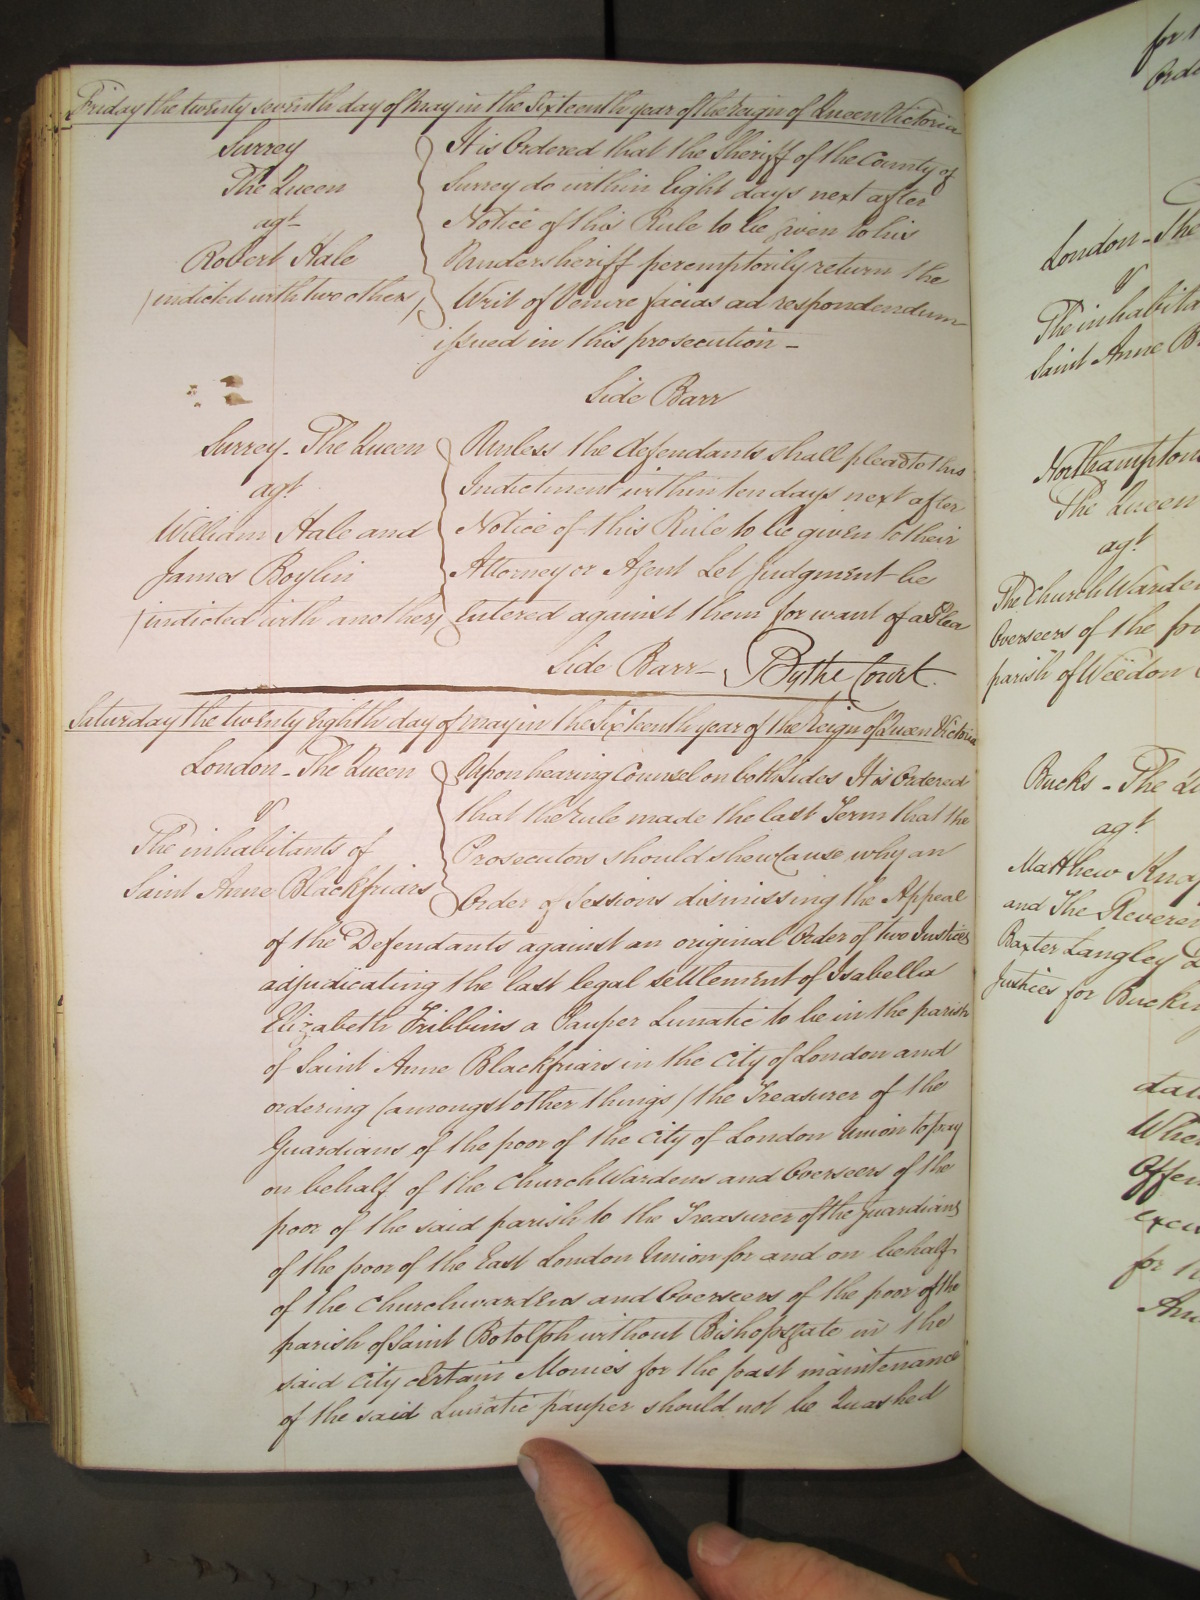 Friday the twenty seventh day of May in the Sixteenth year of the Reign of Queen Victoria
Surrey
The Queen
agt
Robert Hale
(indicted with two others)
It is Ordered that the Sheriff of the County of
Surrey do within Eight days next after
Notice of this Rule to be given to his
Undersheriff peremptorily return the
Writ of Venire facias ad respondendum
issued in this prosecution -
Side Barr
Surrey - The Queen
agt
William Hale and
James Boylin
(indicted with another)
Unless the defendants shall plead to this
Indictment within ten days next after
Notice of this Rule to be given to their
Attorney or Agent Let Judgment be
Entered against them for want of a Plea
Side Barr - By the Court.
Saturday the twenty Eighth day of May in the Sixteenth year of the Reign of Queen Victoria
London - The Queen
v
The inhabitants of
Saint Anne Blackfriars
Upon hearing Counsel on both sides It is Ordered
that the Rule made the last Term that the
Prosecutors should shew Cause why an
Order of Sessions dismissing the Appeal
of the Defendants against an original Order of two Justices
adjudicating the last legal settlement of Isabella
Elizabeth Fribbins a Pauper Lunatic to be in the parish
of Saint Anne Blackfriars in the City of London and
ordering (amongst other things) the Treasurer of the
Guardians of the poor of the City of London Union to pay
on behalf of the Church Wardens and Overseers of the
poor of the said parish to the Treasurer of the Guardians
of the poor of the East London Union for and on behalf
of the Churchwardens and Overseers of the poor of the
parish of Saint Botolph without Bishopsgate in the
said City certain Monies for the past maintenance
of the said Lunatic pauper should not be Quashed
for
London - The
v
The inhabita
Saint Anne B
Northampton
The Queen
agt
The Church Warden
Overseers of the po
parish of Weedon
Bucks - The Qu
agt
Matthew Knap
and The Reveren
Baxter Langley
Justices for Buckin
Wher
Offen
for